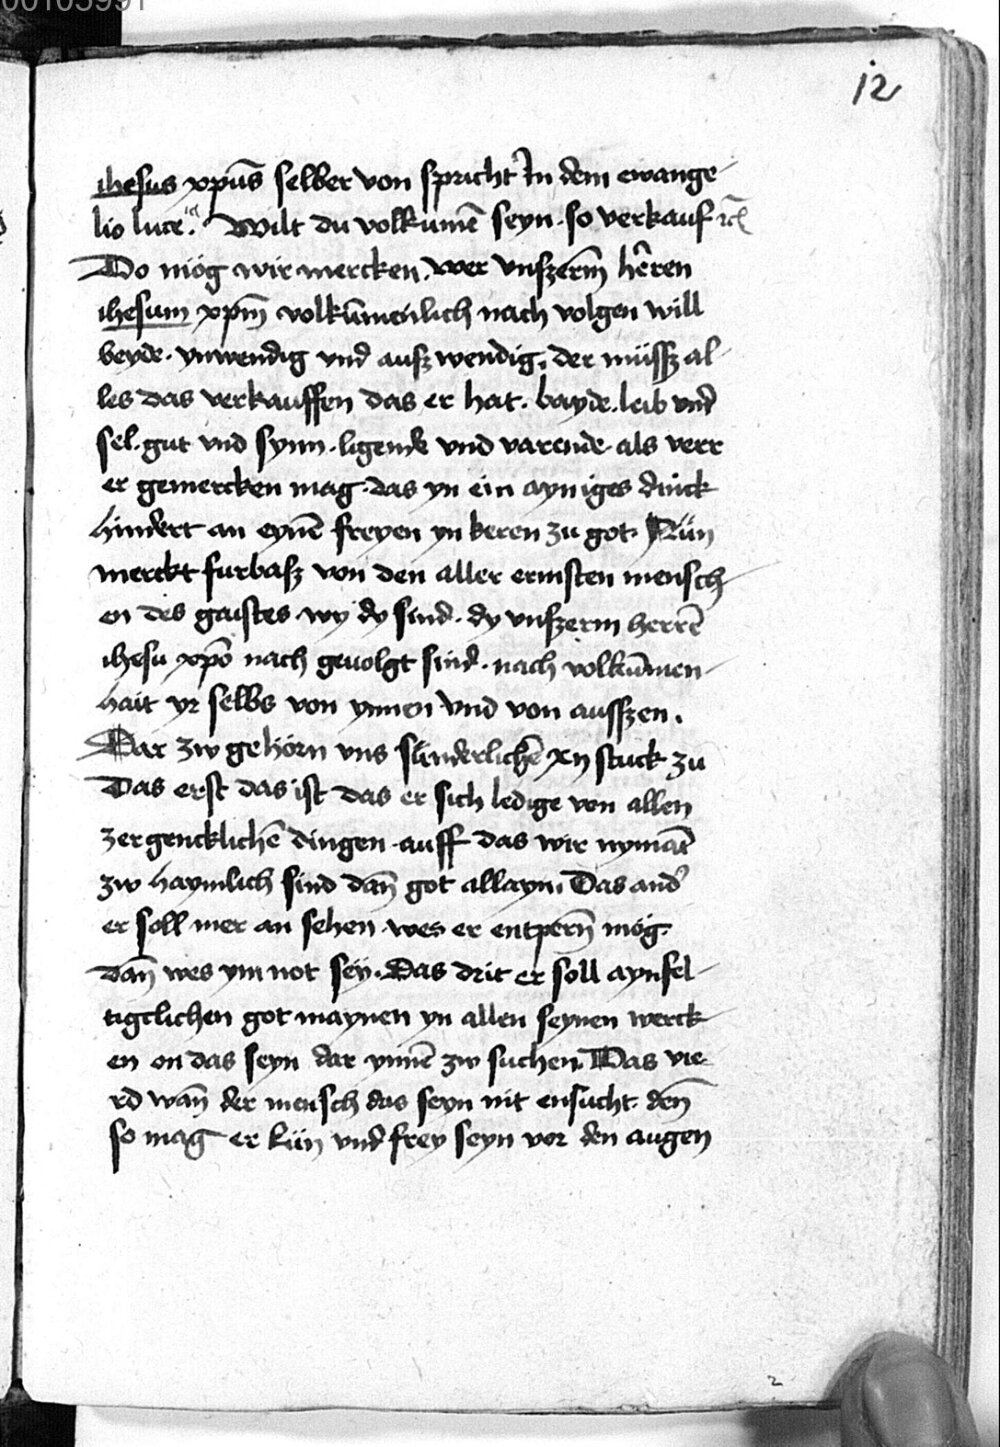 00103991
12
ihesus xpūs selber von spricht In dem ewange-
lio luce. Wilt du volkumē seyn. so verkauf rc̄
Do mög wir mercken. wer vnszerm̄ hêren
ihesum xpm̄ volkūmenlich nach volgen will
beyde. ynwendig vnd ausz wendig. der müssz al-
les das verkauffen das er hat. bayde. leib vnd
sel. gut vnd synn. ligende vnd varende. als verr
er gemercken mag. das yn ein ayniges dinck
hindert an eynē freyen yn keren zu got. Nün
merckt furbasz von den aller ermsten mensch-
en des gaistes. wy dy sind. dy vnszerm herrē
ihesu xpō nach geuolgt sind. nach volkūmen-
hait yr selbs von ynnen vnd von ausszen.
Dar zw gehörn vns sünderlichē xij stuck zü
Das erst das ist das er sich ledige von allen
zergencklichē dingen. auff das wir nymāt
zw haymlich sind dan̄ got allayn. Das and'
er soll mer an sehen. wes er entpern̄ mög.
dan̄ wes ym not sëy. Das drit er soll aynfel-
tigclichen got maynen yn allen seynen werck-
en on das seyn dar ynnē zw suchen. Das vie-
rd wan̄ der mensch das seyn nit ensucht. den̄
so mag er kün vnd frey seyn vor den augen
2